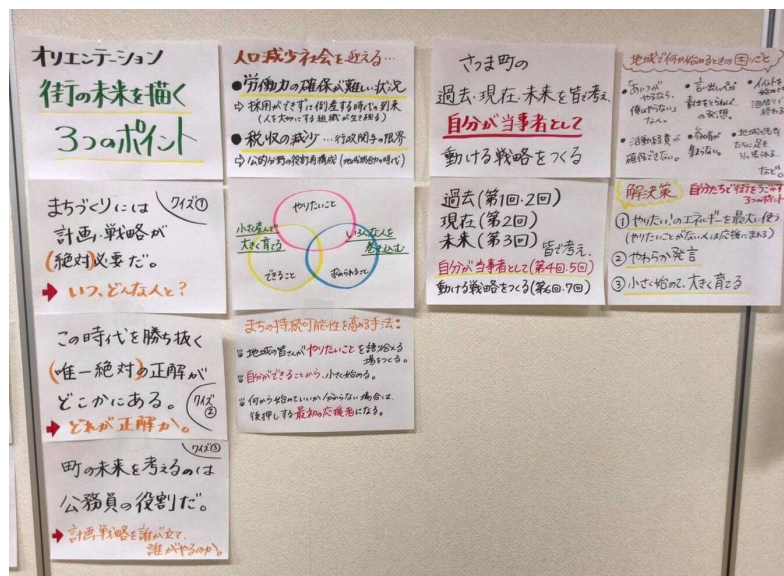 オリエンテーション
街の未来を描く
3つのポイント
まちづくりには
計画、戦略が
(絶対)必要だ。
クイズ①
➡ いつ、どんな人と?
この時代を勝ち抜く
(唯一絶対)の正解が
どこかにある。
クイズ②
➡ どれが正解か。
クイズ③
町の未来を考えるのは
公務員の役割だ。
➡ 計画、戦略を誰が立て、
誰がやるのか。
人口減少社会を迎える…
●労働力の確保が難しい状況
⇨ 採用ができずに倒産する時代の到来
(人を大切にする組織が生き残る)
●税収の減少…行政関与の限界
⇨ 公的分野の役割再構成(地域総合力の時代)
やりたいこと
小さく産んで
大きく育てる
いろんな人を
巻き込む
できること
求められること
まちの持続可能性を高める手法:
地域の皆さんがやりたいことを語り合える
場をつくる。
自分ができることから、小さく始める。
何から始めていいか分からない場合は、
後押しする最初の応援者になる。
さつま町の
過去・現在・未来を皆で考え、
自分が当事者として
動ける戦略をつくる
過去(第1回・2回)
現在(第2回)
未来(第3回) 皆で考え、
自分が当事者として(第4回、5回)
動ける戦略をつくる(第6回、7回)
地域で何か始めるときの困りごと
「あいつが
やるなら、
俺はやらない」
な人。
言い出しっぺが
責任をとらねば
の発想。
イベントを
始めても
1回限りで
終わる。
活動経費が
確保できない。
参加者が
集まらない。
地域の先輩
たちに足を
引っぱられる。
など。
解決策 自分たちで街をうごかす
3つのポイント
①やりたい!のエネルギーを最大に使う
(やりたいことがない人は応援にまわる)
②やわらか発言
③小さく始めて、大きく育てる